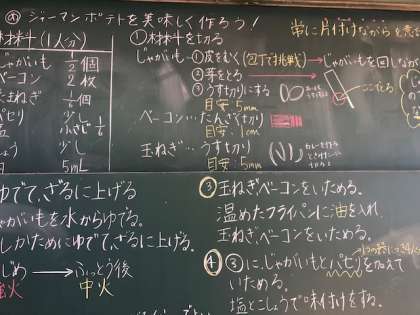 ㋱ジャーマンポテトを美味しく作ろう!
常に片付けながらを意
材料(1人分)
がいも 1/2個
ベーコン 2枚
玉ねぎ 1/6個
パセリ 少し
塩
少し
5mL
①材料を切る
じゃがいも…①皮をむく(包丁で挑戦)→じゃがいもを回しなが
②芽をとる
③うすい切りにする
目安:5mm
ベーコン…たんざく切り
目安:1cm
玉ねぎ…うす切り
目安:5mm
ゆでて、ざるに上げる
ゃがいもを水からゆでる。
しかためにゆでて、ざるに上げる。
じめ→ふっとう後
強火 中火
③玉ねぎ、ベーコンをいためる。
温めたフライパンに油を入れ、
玉ねぎ、ベーコンをいためる。
④③に、じゃがいもとパセリを加えて
いためる。
塩とこしょうで味付けをする。